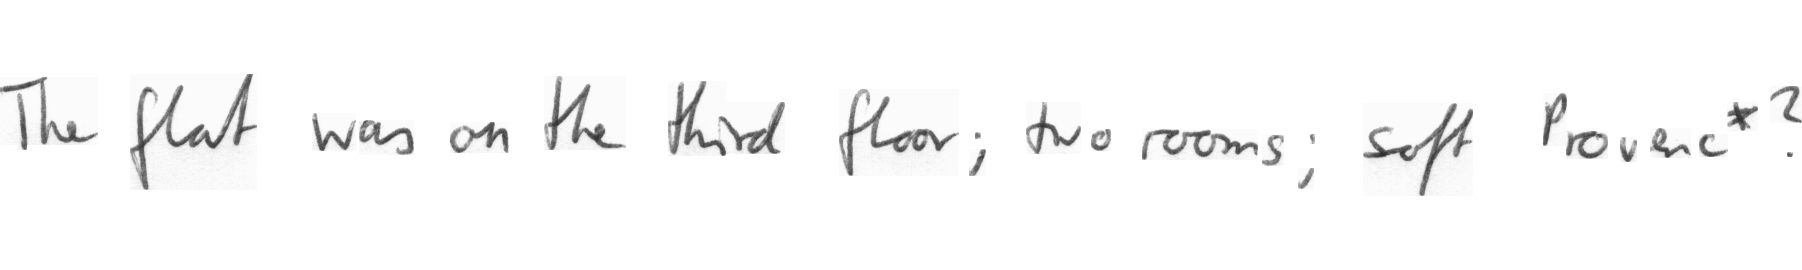 The flat was on the third floor; two rooms; soft Provenc*?